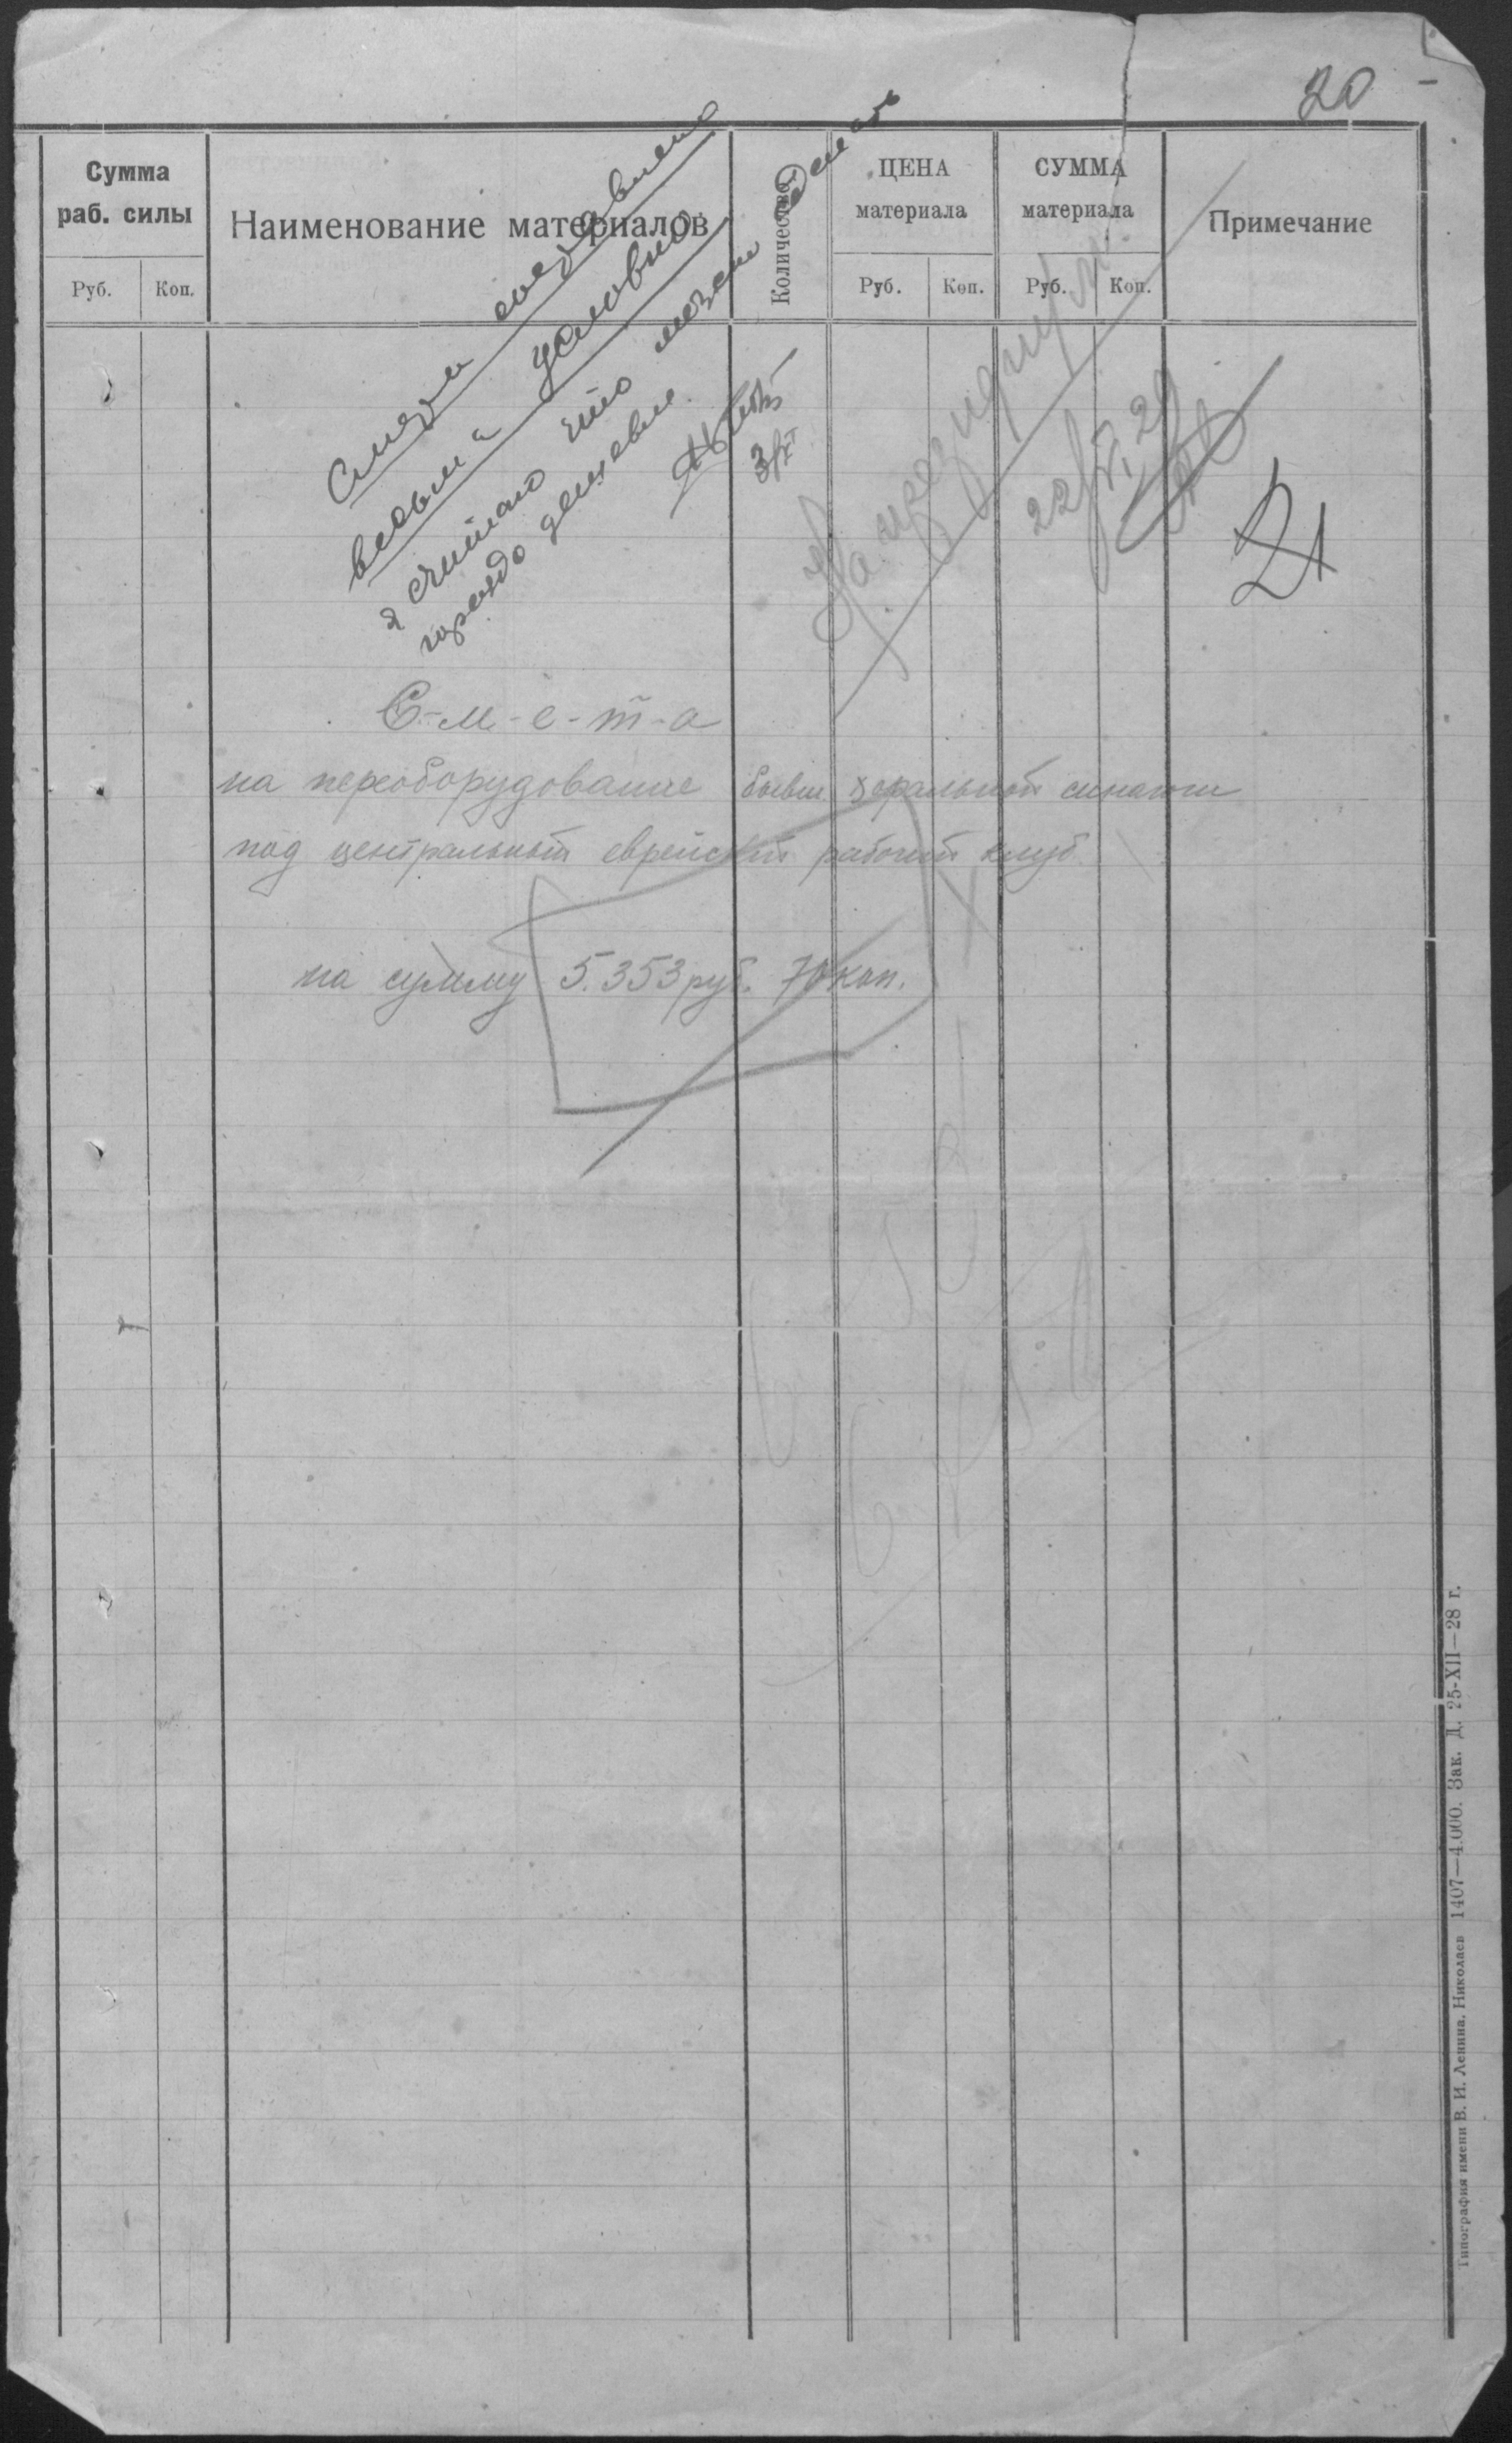 20
Сумма раб. силы
Наименование материалов
Количество
ЦЕНА материала
СУММА материала
Примечание
Руб. Коп.
Руб. Коп.
Руб. Коп.
Смета составлена
весьма условно
я считаю что можем сделать
гораздо дешевле.
3/XI
На президиум.
22/XI 29
21
С-м-е-т-а
на переоборудование бывш хоральной синагоги
под центральный еврейский рабочий клуб
на сумму 5.353 руб. 70 коп.
Типография имени В. И. Ленина. Николаев 1407—4.000. Зак. Д. 25-XII—28 г.